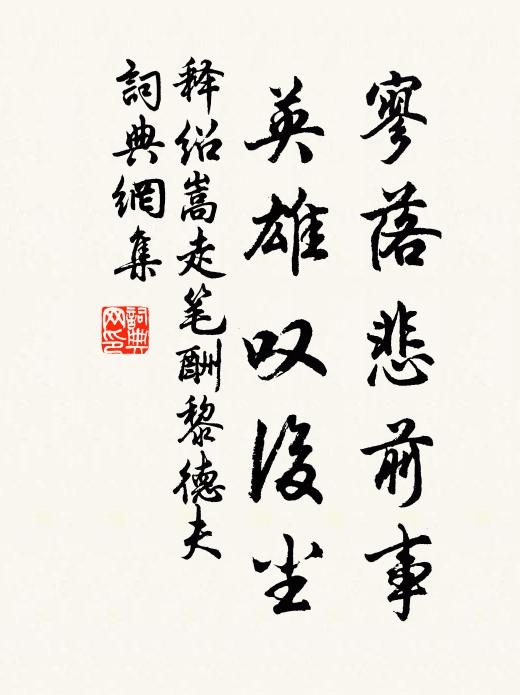 寥落悲前事
英雄叹后尘
释绍嵩走笔酬黎德夫
詞典網集
詞典
网印